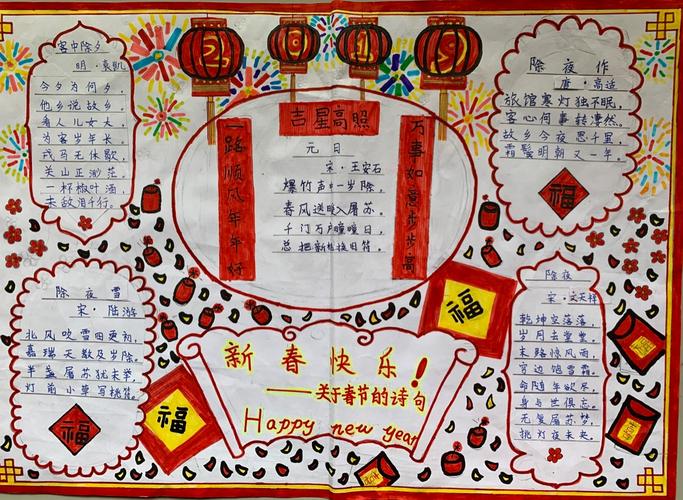 2019
客中除夕
明·袁凯
今夕为何夕，
他乡说故乡。
看人儿女大，
为客岁年长。
戎马无休歇，
关山正渺茫。
一杯椒叶酒，
未敌泪千行。
吉星高照
一路顺风年年好
万事如意步步高
元日
宋·王安石
爆竹声中一岁除，
春风送暖入屠苏。
千门万户曈曈日，
总把新桃换旧符。
除夜作
唐·高适
旅馆寒灯独不眠，
客心何事转凄然。
故乡今夜思千里，
霜鬓明朝又一年。
福
福
除夜雪
宋·陆游
北风吹雪四更初，
嘉瑞天教及岁除。
半盏屠苏犹未举，
灯前小草写桃符。
福
福
新春快乐！
——关于春节的诗句
Happy new year
除夜
宋·文天祥
乾坤空落落，
岁月去堂堂。
末路惊风雨，
穷边饱雪霜。
命随年欲尽，
身与世俱忘。
无复屠苏梦，
挑灯夜未央。